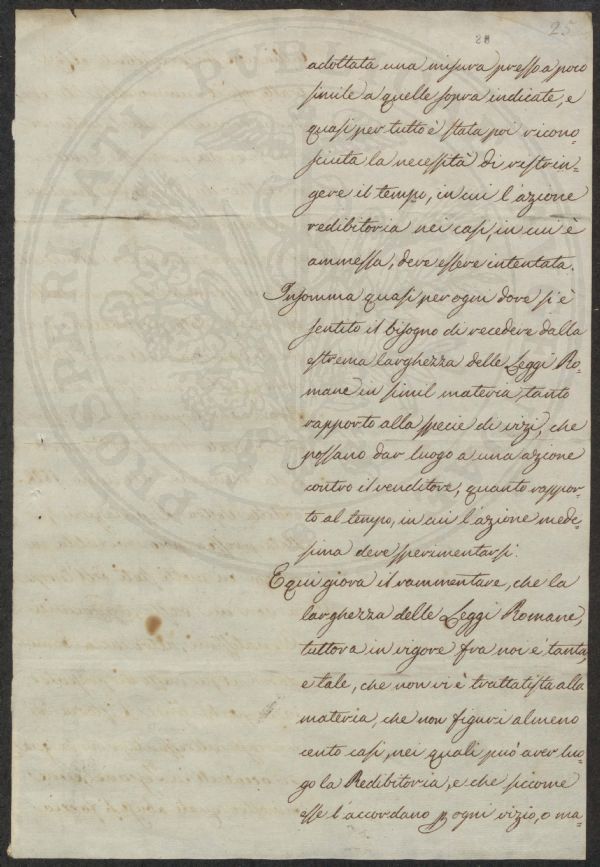 25
28
adottata una misura presso a poco
simile a quelle sopra indicate, e
quasi per tutto è stata poi ricono-
sciuta la necessità di ristrin-
gere il tempo, in cui l'azione
redibitoria nei casi, in cui è
ammessa, deve essere intentata.
Insomma quasi per ogni dove si è
sentito il bisogno di recedere dalla
estrema larghezza delle Leggi Ro-
mane in simil materia, tanto
rapporto alla specie di vizi, che
possano dar luogo a una azione
contro il venditore, quanto rappor-
to al tempo, in cui l'azione mede-
sima deve sperimentarsi.
E qui giova il rammentare, che la
larghezza delle Leggi Romane,
tuttora in vigore fra noi è tanta,
e tale, che non vi è trattatista alla
materia, che non figuri almeno
cento casi, nei quali può aver luo-
go la Redibitoria, e che siccome
esse l'accordano p ogni vizio, o ma-
PROSPERITATI PUB